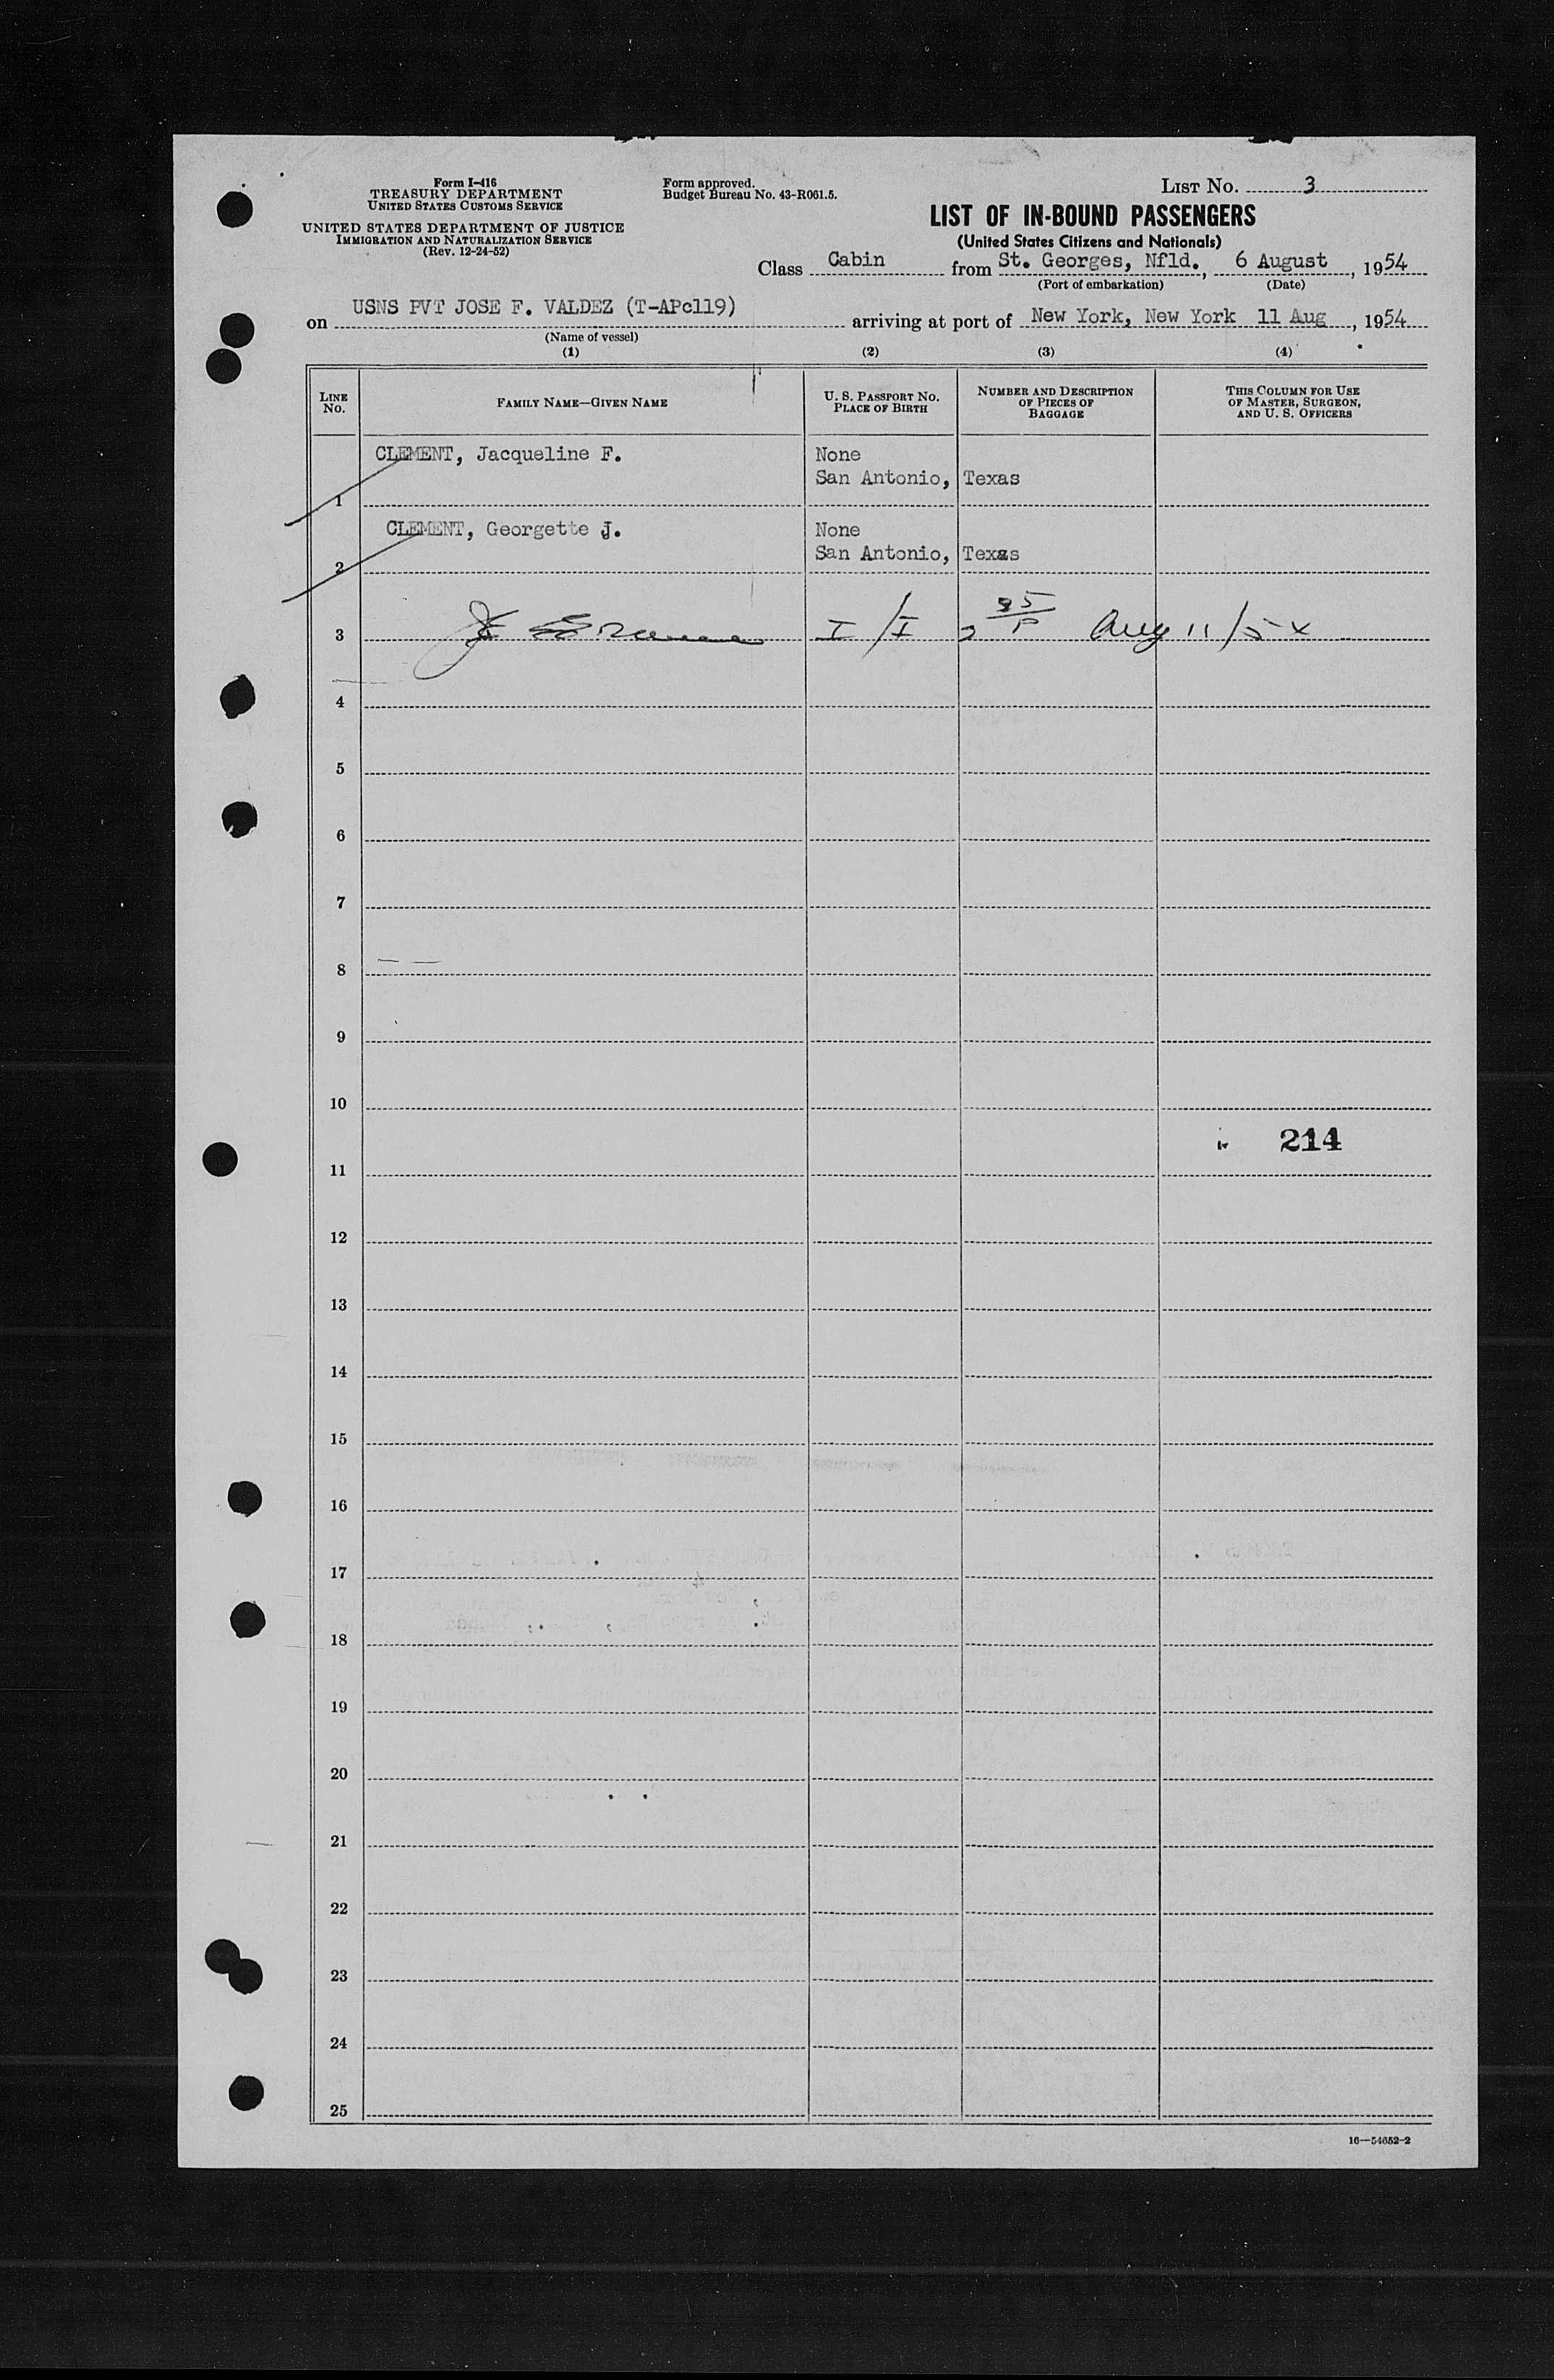 Form I-416
TREASURY DEPARTMENT
UNITED STATES CUSTOMS SERVICE
UNITED STATES DEPARTMENT OF JUSTICE
IMMIGRATION AND NATURALIZATION SERVICE
(Rev. 12-24-52)
Form approved.
Budget Bureau No. 43-R061.5.
LIST NO. 3
LIST OF IN-BOUND PASSENGERS
(United States Citizens and Nationals)
Class Cabin from St. Georges, Nfld., 6 August, 1954
(Port of embarkation) (Date)
on USNS PVT JOSE F. VALDEZ (T-APc119) arriving at port of New York, New York 11 Aug, 1954
(Name of vessel)
(1) (2) (3) (4)
LINE NO.
FAMILY NAME—GIVEN NAME
U. S. PASSPORT NO.
PLACE OF BIRTH
NUMBER AND DESCRIPTION
OF PIECES OF
BAGGAGE
THIS COLUMN FOR USE
OF MASTER, SURGEON,
AND U. S. OFFICERS
CLEMENT, Jacqueline F. None
San Antonio, Texas
1
CLEMENT, Georgette J. None
San Antonio, Texas
2
3 I/I Aug 11/54
4
5
6
7
8
9
10
214
11
12
13
14
15
16
17
18
19
20
21
22
23
24
25
16—54652-2